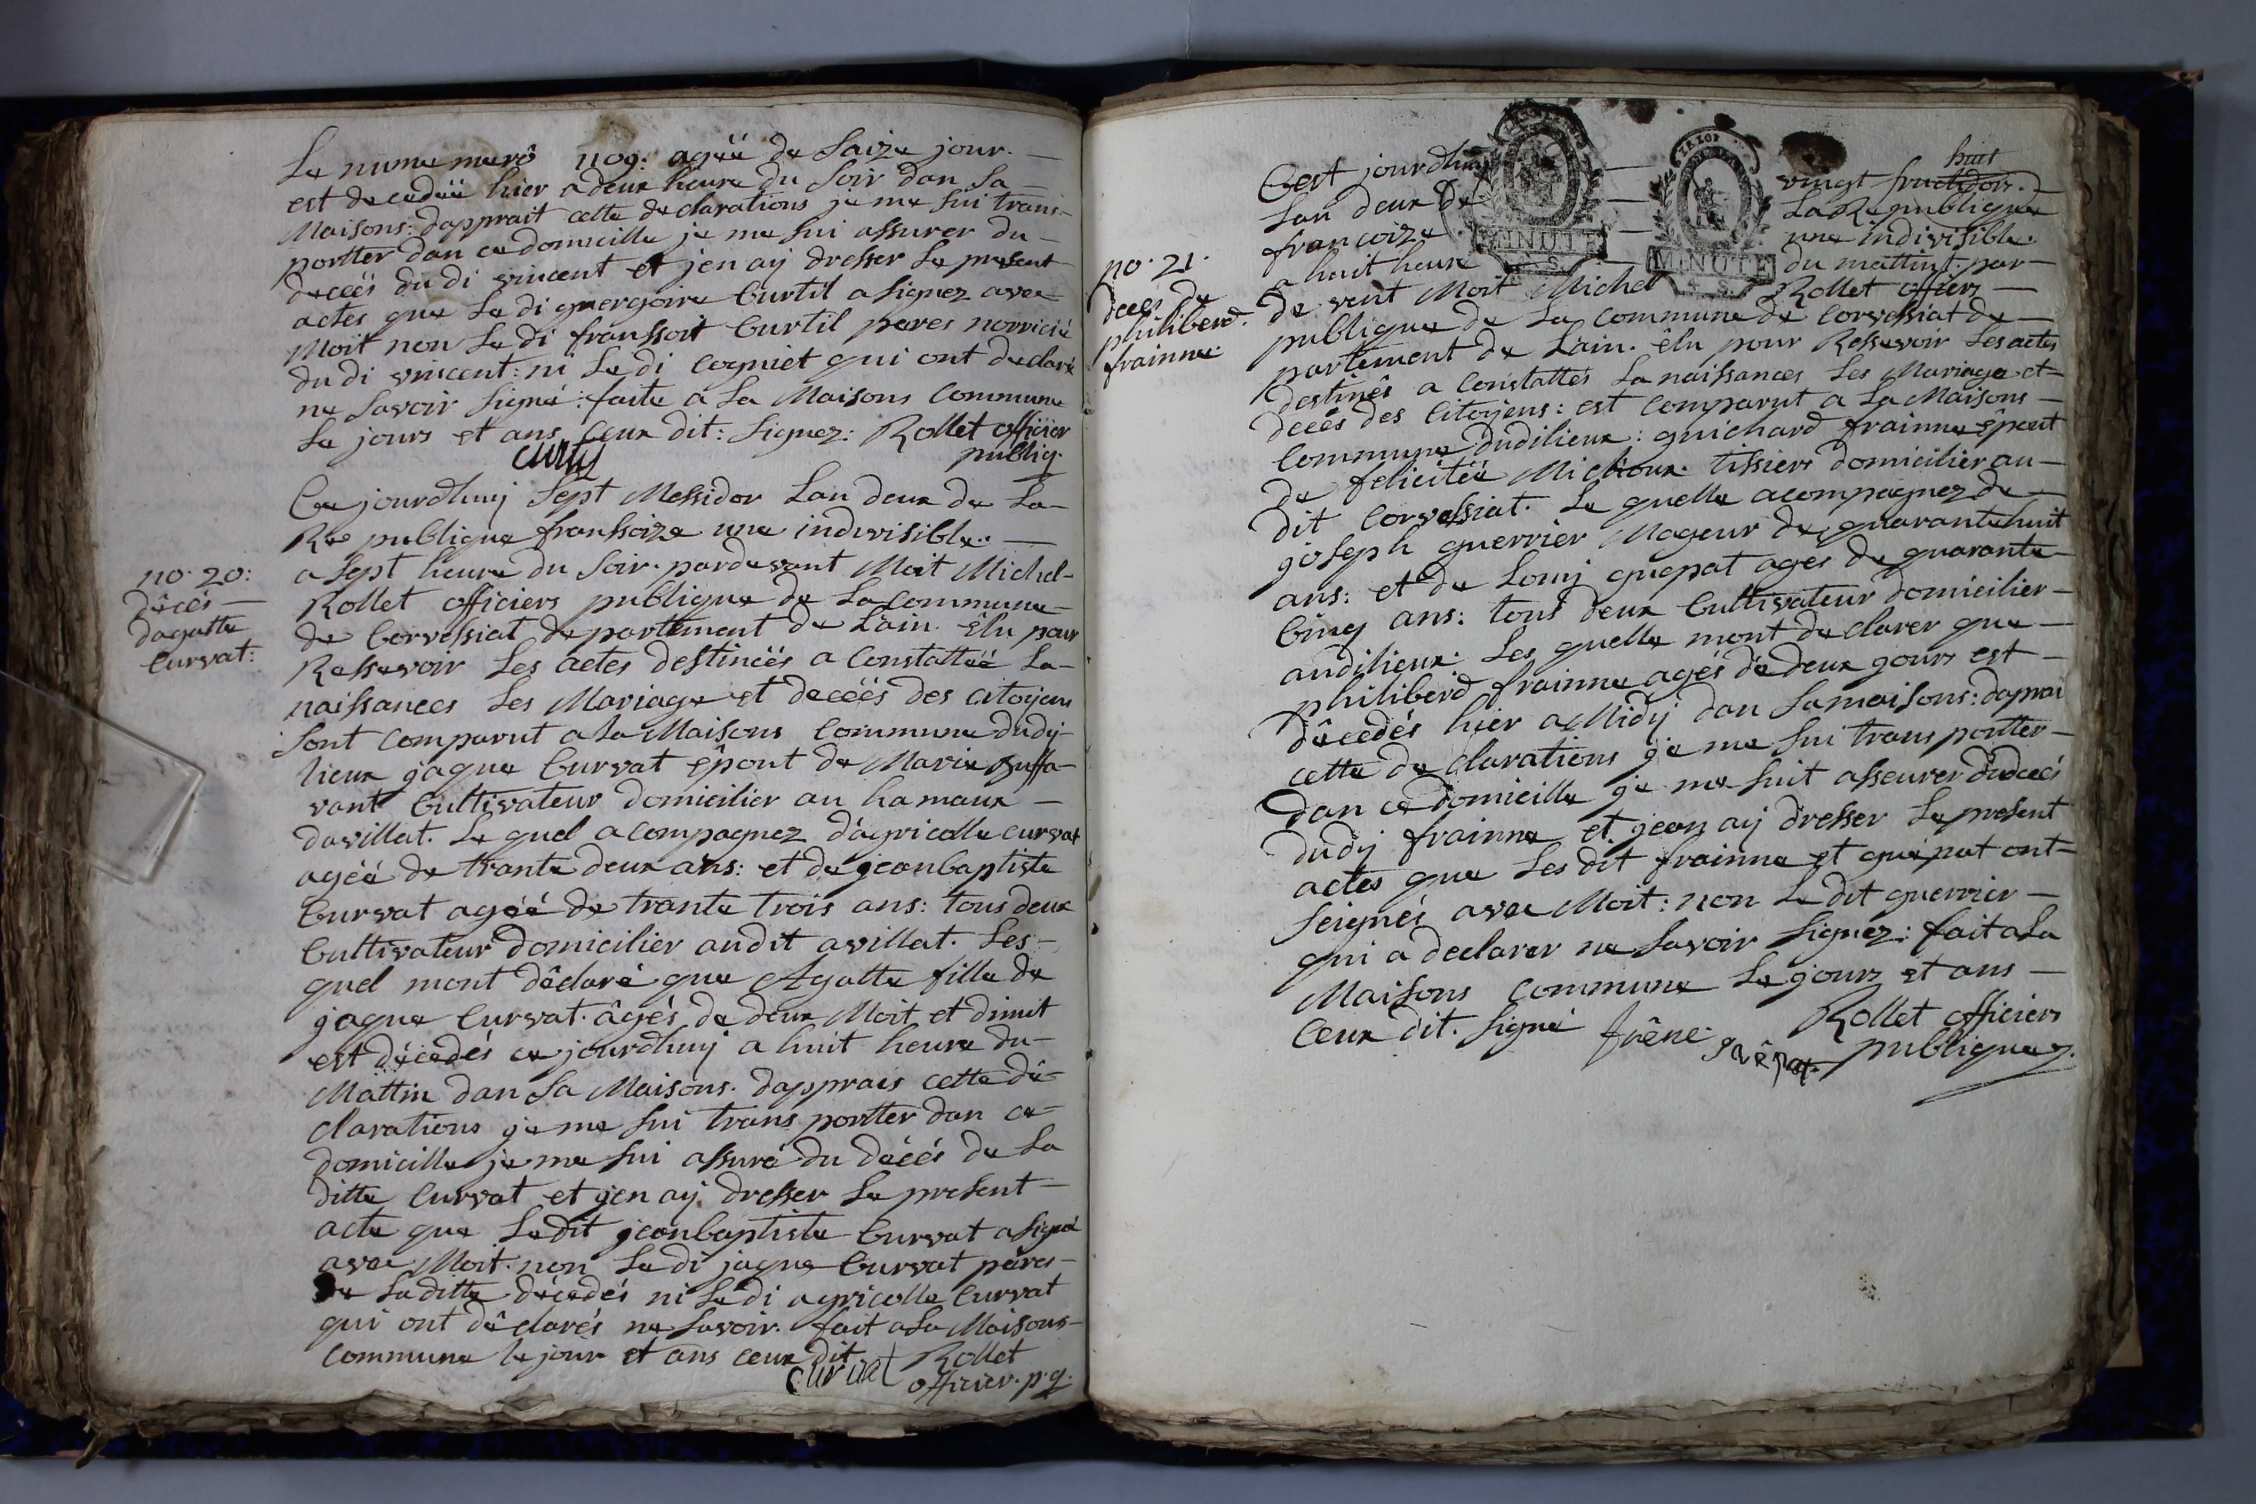 Le nume merô 1109: agéé de Saize jour.
est decedéé hier a deux heure du Soir dan Sa
Maisons: dapprait cette declarations je me Sui trans-
portter dan ce domicille je me Sui assurer du
decéés du di vincent et jen aÿ dresser Le present
actes que Le di guergoire Curtil a Signez avec
Moit non Le di franssoit Curtil peres norricié
du di vincent: ni Le di cogniet qui ont declaré
ne Savoir Signé: faite a La Maisons Commune
Le jours et ans ceux dit: Signez: Rollet officier
publiq.
no. 20:
décés
dagatte
Curvat:
Ce jourdhuij Sept Messidor Lan deux de La
Re publique franssoize une indivisible.
a Sept heure du Soir. pardevant Moit Michel
Rollet officiers publique de La commune
de Corvessiat departement de L'ain. Êlu pour
Ressevoir Les actes destinéés a Constattéé La
naissances Les Mariage et decéés des citoyens
Sont comparut a La Maisons Commune dudy
lieux jaque Curvat êpout de Marie Buffa-
vant Cultivateur domicilier au hamaux
davillat. Le quel acompagnez d'agricolle curvat
agéé de trante deux ans: et de jeanbaptiste
Curvat agéé de trante trois ans: tous deux
Cultivateur domicilier audit avillat. Les-
quel mont dêclaré que Agatte fille de
jaque Curvat. âgés de deux Moit et dimit
est décedés ce jourdhuij a huit heure du
Mattin dan Sa Maisons. dapprais cette dé-
clarations je me Sui trans portter dan ce
domicille je me Sui assuré du décés de La
ditte Curvat et jen aij dresser Le present
acte que Ledit jeanbaptiste Curvat a Signé
avec Moit. non Le di jaque Curvat péres
de Laditte décedés ni Le di agricolle Curvat
qui ont dêclarés ne Savoir. fait a La Maisons
Commune le jour et ans ceux dit. Rollet
curvat officier. p. q.
no. 21.
decés de
philiberd.
frainne.
Cert jourdhuij vingt huit fructidor.
Lan deux de La Republique
françoize une indivisible.
a huit heure du mattint. par-
de vent Moit Michel Rollet officiers
publique de La Commune de Corvessiat de-
partement de L'ain. êlu pour Ressevoir Les actes
destinés a Constattés La naissances Les Mariage et
decés des Citoyens: est Comparut a La Maisons
Commune dudilieux: guichard frainne êpout
de felicitéé Michoux. tissiers domicilier au-
dit Corvessiat. Le quelle acompagnez de
joseph guerrier Mageur de quarante huit
ans: et de Louij guepat ages de quarante
Cinq ans: tous deux Cultivateur domicilier
audilieux. Les quelle mont declarer que
philiberd frainne agés de deux jours est
dêcedés hier a Midÿ dan Samaisons: daprai
cette de clarations je me Sui trans portter
dan ce domicille je me Suit asseurer dudecés
dudÿ frainne et jeen aij dresser Le present
actes que Les dit frainne et guepat ont
Seignés avec Moit: non Le dit guerrier
qui a declarer ne Savoir Signez: fait a La
Maisons Commune Le jours et ans
Ceux dit. Signé frêne Rollet officiers
guêpat publiquez.
MINUTE
MINUTE